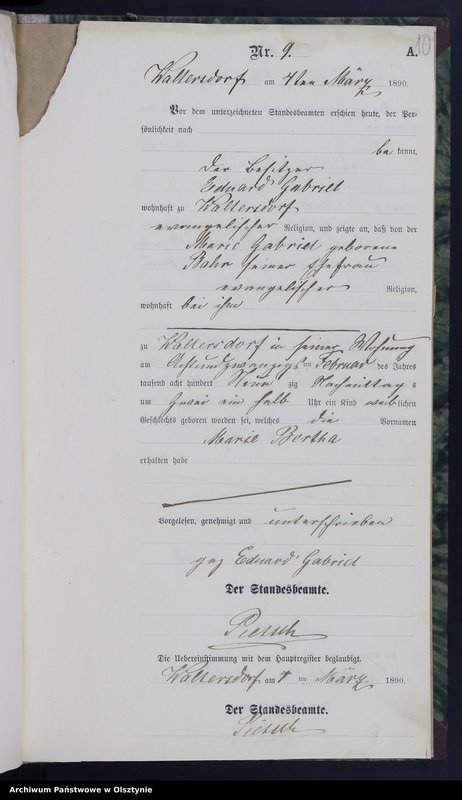 10
Nr. 9. A.
Waltersdorf am 4ten März 1890.
Vor dem unterzeichneten Standesbeamten erschien heute, der Per-
sönlichkeit nach
bekannt,
der Besitzer
Eduard Gabriel
wohnhaft zu Waltersdorf
evangelischer Religion, und zeigte an, daß von der
Marie Gabriel geborene
Bahr seiner Ehefrau
evangelischer Religion,
wohnhaft bei ihm
zu Waltersdorf in seiner Wohnung
am Achtundzwanzigsten Februar des Jahres
tausend acht hundert Neunzig Nachmittags
um zwei ein halb Uhr ein Kind weiblichen
Geschlechts geboren worden sei, welches die Vornamen
Marie Bertha
erhalten habe
Vorgelesen, genehmigt und unterschrieben
gez Eduard Gabriel
Der Standesbeamte.
Pietsch
Die Uebereinstimmung mit dem Hauptregister beglaubigt.
Waltersdorf am 4ten März 1890.
Der Standesbeamte.
Pietsch
Archiwum Państwowe w Olsztynie